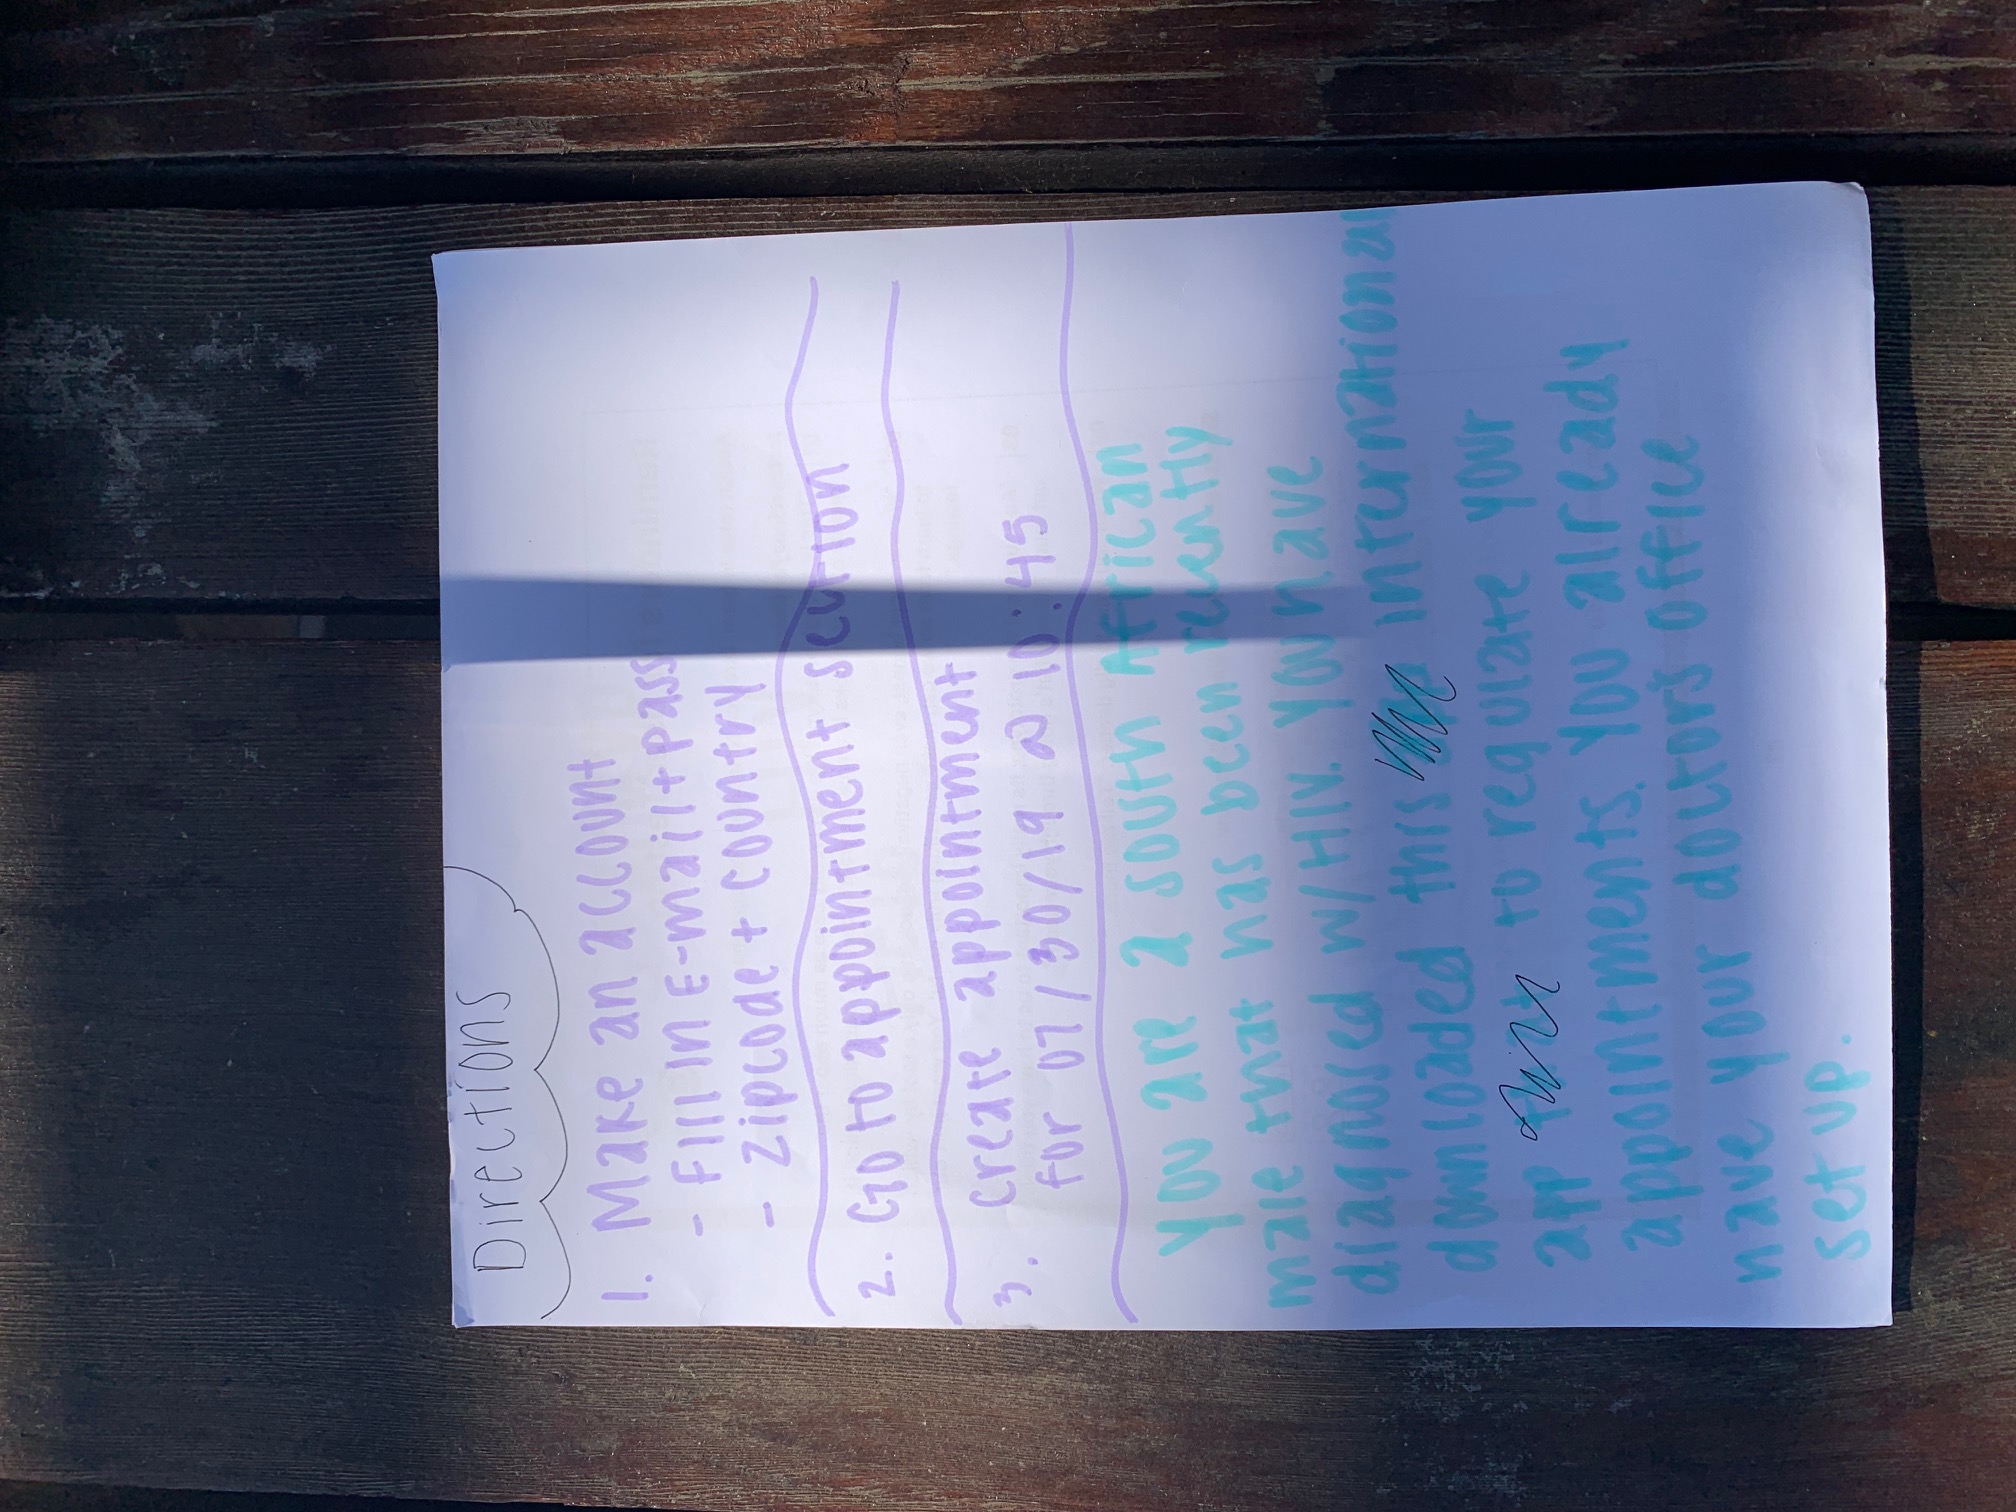 Directions
1. Make an account
- Fill in E-mail + pass
- Zipcode + country
2. Go to appointment section
3. Create appointment
for 07/30/19 @ 10:45
You are a South African
male that has been recently
diagnosed w/ HIV. You have
downloaded this international
app to regulate your
appointments. You already
have your doctor's office
set up.